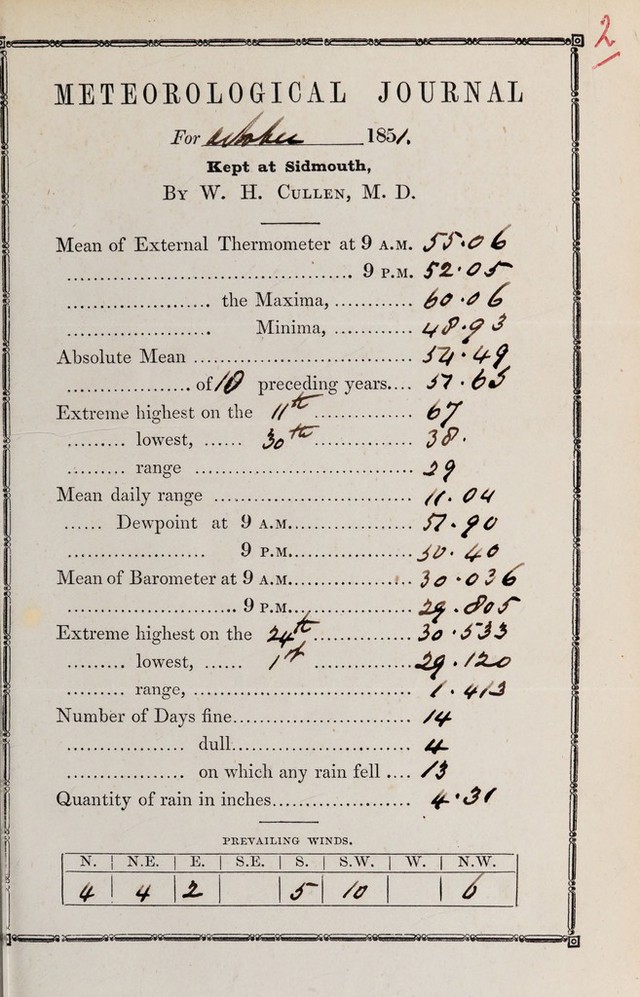 2
METEOROLOGICAL JOURNAL
For October 1851.
Kept at Sidmouth,
By W. H. Cullen, M. D.
Mean of External Thermometer at 9 A.M. 55.06
........................................ 9 P.M. 52.05
..................... the Maxima, ............ 60.06
..................... Minima, ............ 48.93
Absolute Mean ................................. 54.49
................... of 10 preceding years.... 51.65
Extreme highest on the 11th ............... 67
......... lowest, ...... 30th ............... 38.
......... range ................................. 29
Mean daily range .............................. 11.04
...... Dewpoint at 9 A.M................... 51.90
..................... 9 P.M................... 50.40
Mean of Barometer at 9 A.M................... 30.036
......................... 9 P.M................... 29.805
Extreme highest on the 24th ............... 30.533
......... lowest, ...... 1st ............... 29.120
......... range, ................................. 1.413
Number of Days fine........................... 14
.................. dull........................... 4
.................. on which any rain fell .... 13
Quantity of rain in inches..................... 4.31
PREVAILING WINDS.
N. | N.E. | E. | S.E. | S. | S.W. | W. | N.W.
4 | 4 | 2 | | 5 | 10 | | 6